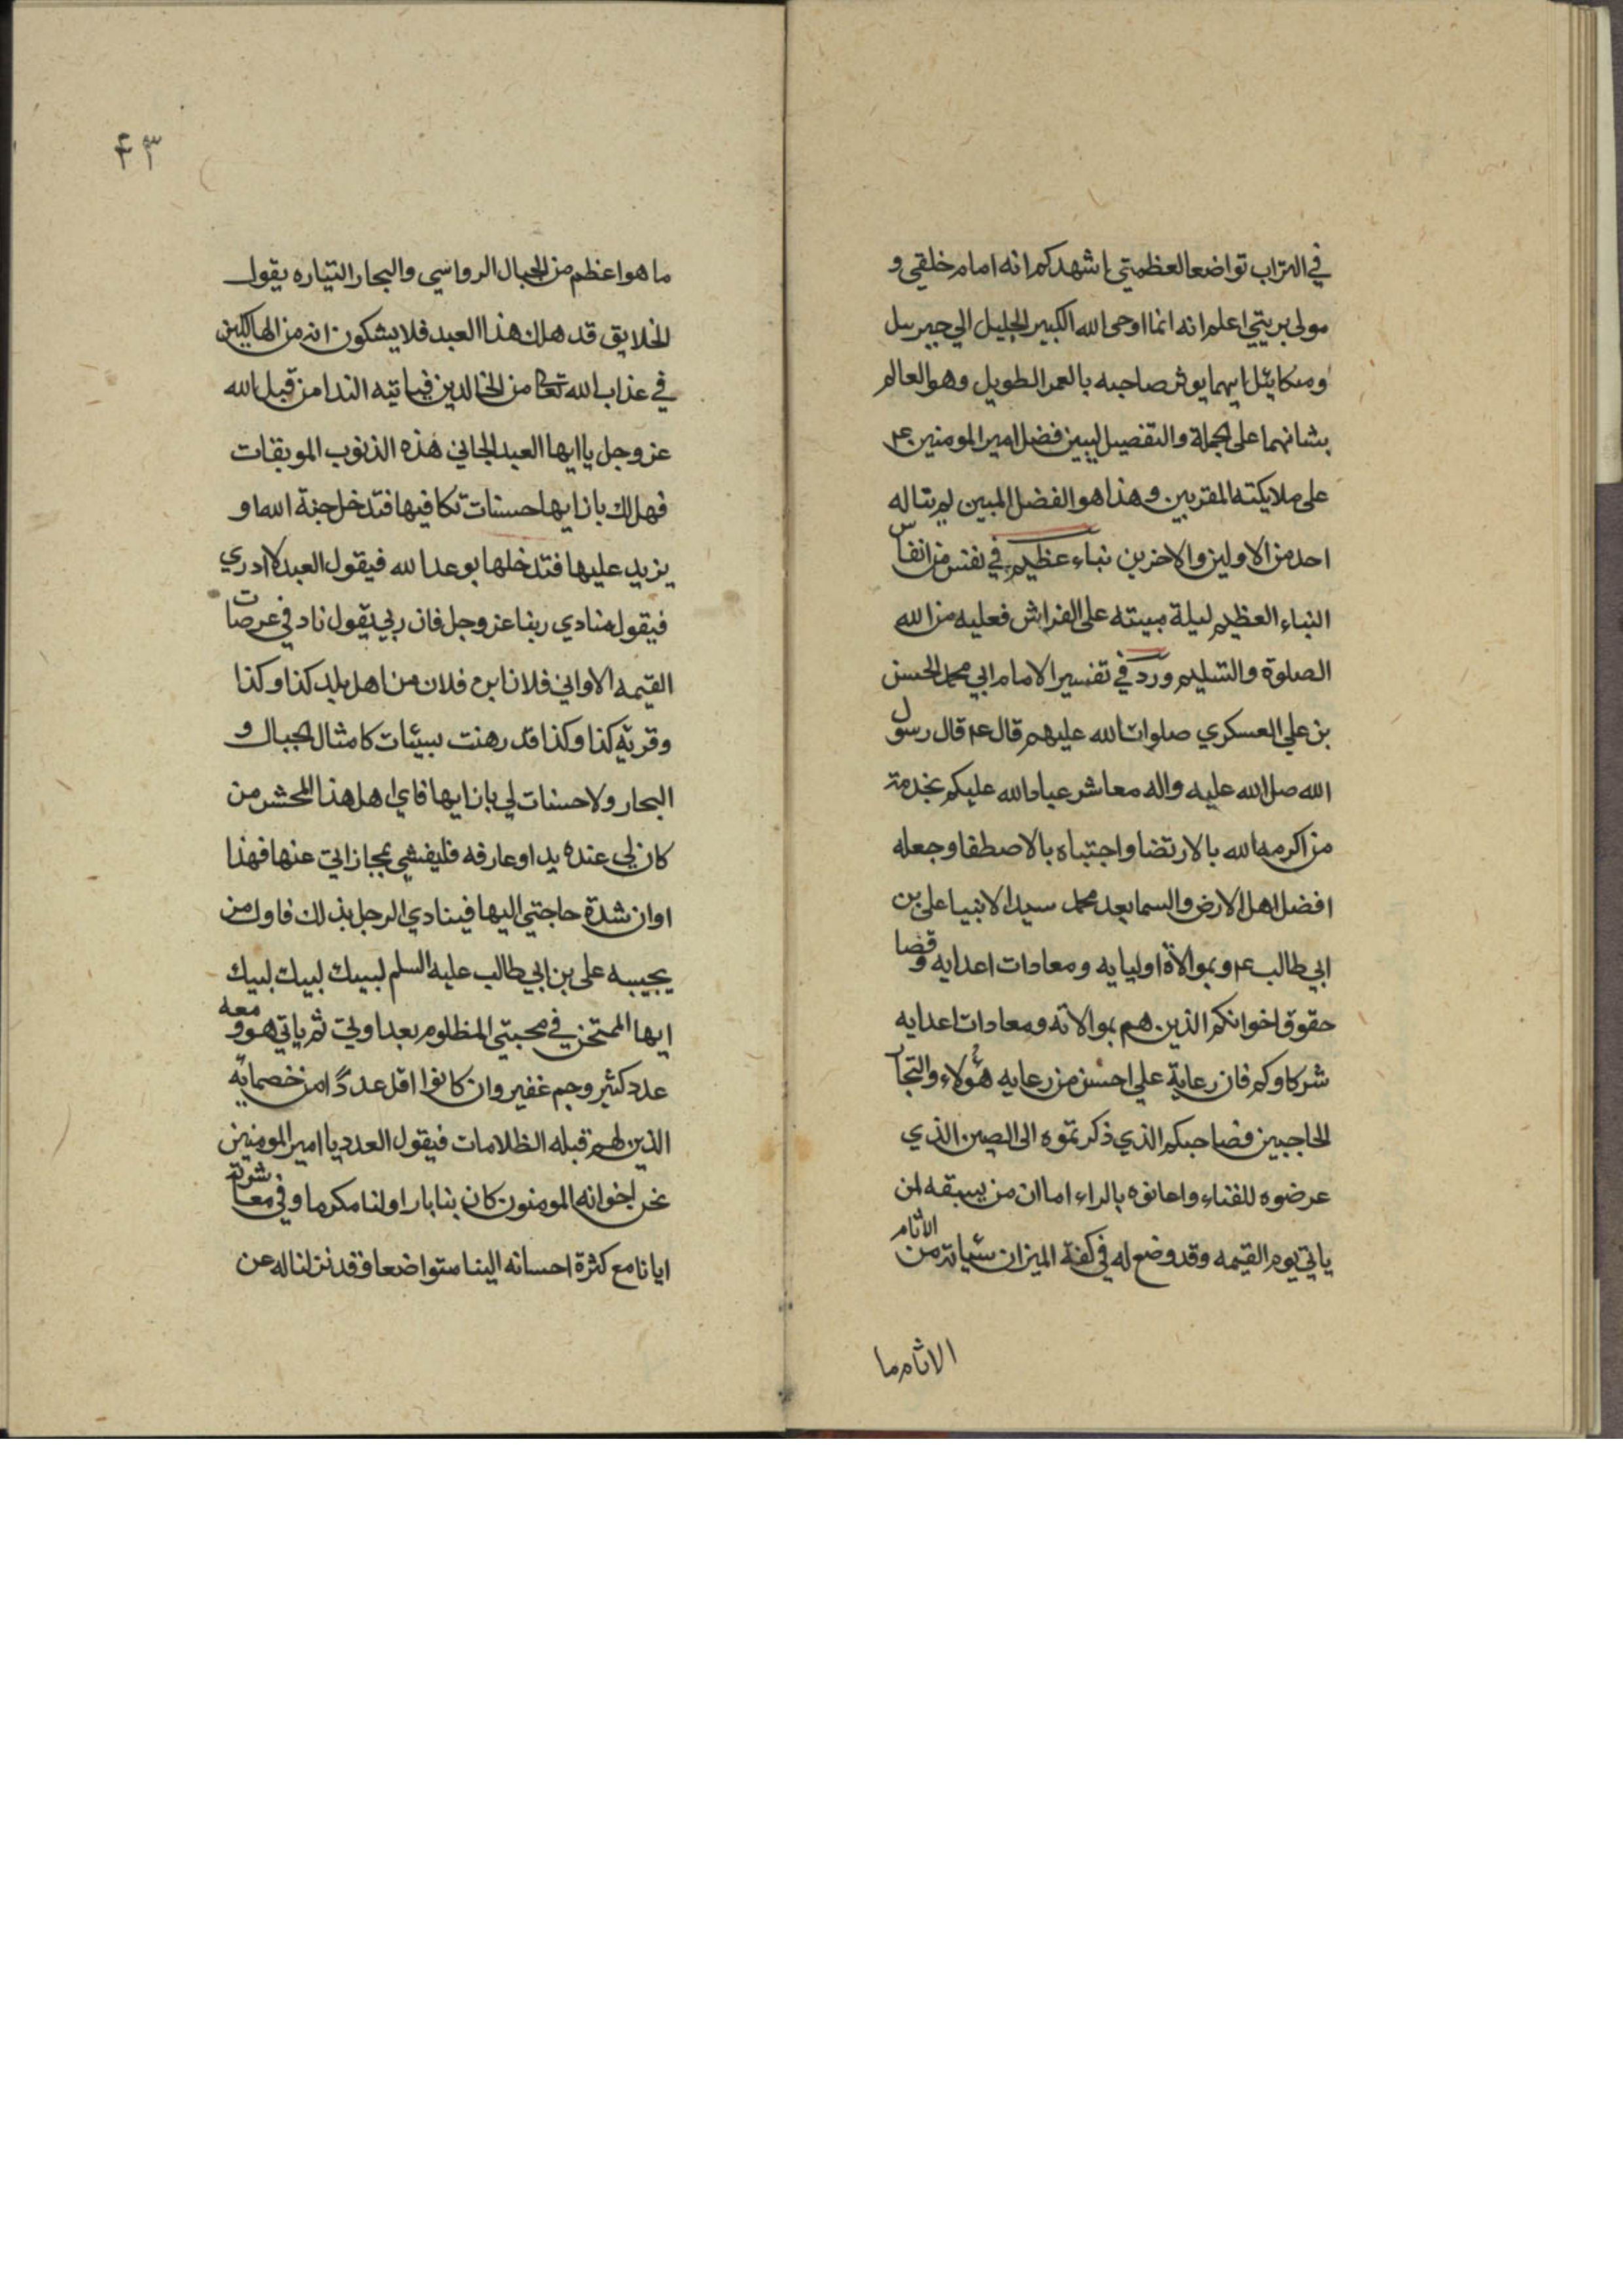 في التراب تواضعا لعظمتي اشهدكم انه امام خلقي و
مولى بريتي اعلم انه انما اوحى الله الكبير الجليل الي جبرييل
وميكاييل ايهما يوثر صاحبه بالعمر الطويل وهو العالم
بشانهما على الجملة والتفصيل ليبين فضل امير المومنين ع
على ملايكته المقربين وهذا هو الفضل المبين لم يناله
احد من الاولين والاخرين نباء عظيم في نفس من انفاس
النباء العظيم ليلة مبيته على الفراش فعليه من الله
الصلوة والتسليم ورد في تفسير الامام ابي محمد الحسن
بن علي العسكري صلوات الله عليهم قال ع قال رسول
الله صلى الله عليه واله معاشر عباد الله عليكم بخدمة
من اكرمه الله بالارتضا واجتباه بالاصطفا وجعله
افضل اهل الارض والسما بعد محمد سيد الانبيا على بن
ابي طالب ع وبموالاة اوليايه ومعادات اعدايه وقضا
حقوق اخوانكم الذين هم بموالاته ومعادات اعدايه
شركاوكم فان رعاية علي احسن من رعايه هؤلاء والتجار
الخاجيين فصاحبكم الذي ذكرتموه الى الصين الذي
عرضوه للفناء واعانوه بالراء اما ان من يسبقه لمن
ياتي يوم القيمه وقد وضع له في كفة الميزان سيياته من الاثام
الاثام ما
٤٣
ما هو اعظم من الجبال الرواسي والبحار التياره يقول
الخلايق قد هلك هذا العبد فلا يشكون انه من الهالكين
في عذاب الله تعا من الخالدين فياتيه الندا من قبل الله
عز وجل يا ايها العبد الجاني هذه الذنوب الموبقات
فهل لك بازايها حسنات تكافيها فتدخل جنة الله او
يزيد عليها فتدخلها بوعد الله فيقول العبد لا ادري
فيقول منادي ربنا عز وجل فان ربي يقول ناد في عرصات
القيمه الا واني فلان ابن فلان من اهل بلد كذا وكذا
وقرية كذا وكذا قد رهنت بسيئات كامثال الجبال و
البحار ولا حسنات لي بازايها فاي اهل هذا المحشر من
كان لي عنده يد او عارفه فليغثني بمجازاتي عنها فهذا
اوان شدة حاجتي اليها فينادي الرجل بذلك فاول من
يجيبه على بن ابي طالب عليه السلم لبيك لبيك لبيك
ايها الممتحن في محبتي المظلوم بعداوتي ثم ياتي هو ومعه
عدد كثير وجم غفير وان كانوا اقل عددًا من خصمايه
الذين لهم قبله الظلامات فيقول العدد يا امير المومنين
نحن اخوانه المومنون كان بنا بارا ولنا مكرما وفي معاشرته
ايانا مع كثرة احسانه الينا متواضعا وقد نزلنا له عن